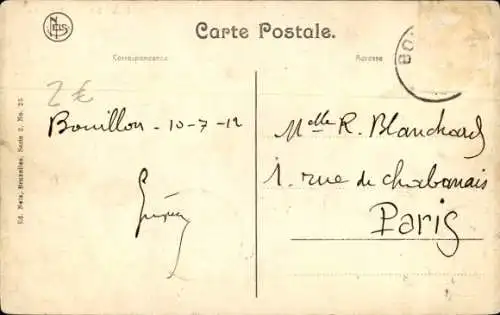 NELS
Carte Postale.
Correspondance
Adresse
BO
2 €
Bouillon - 10-7-12
Melle R. Blanchard
1. rue de chabanais
Paris
Ed. Nels, Bruxelles, Serie 2, No. 25